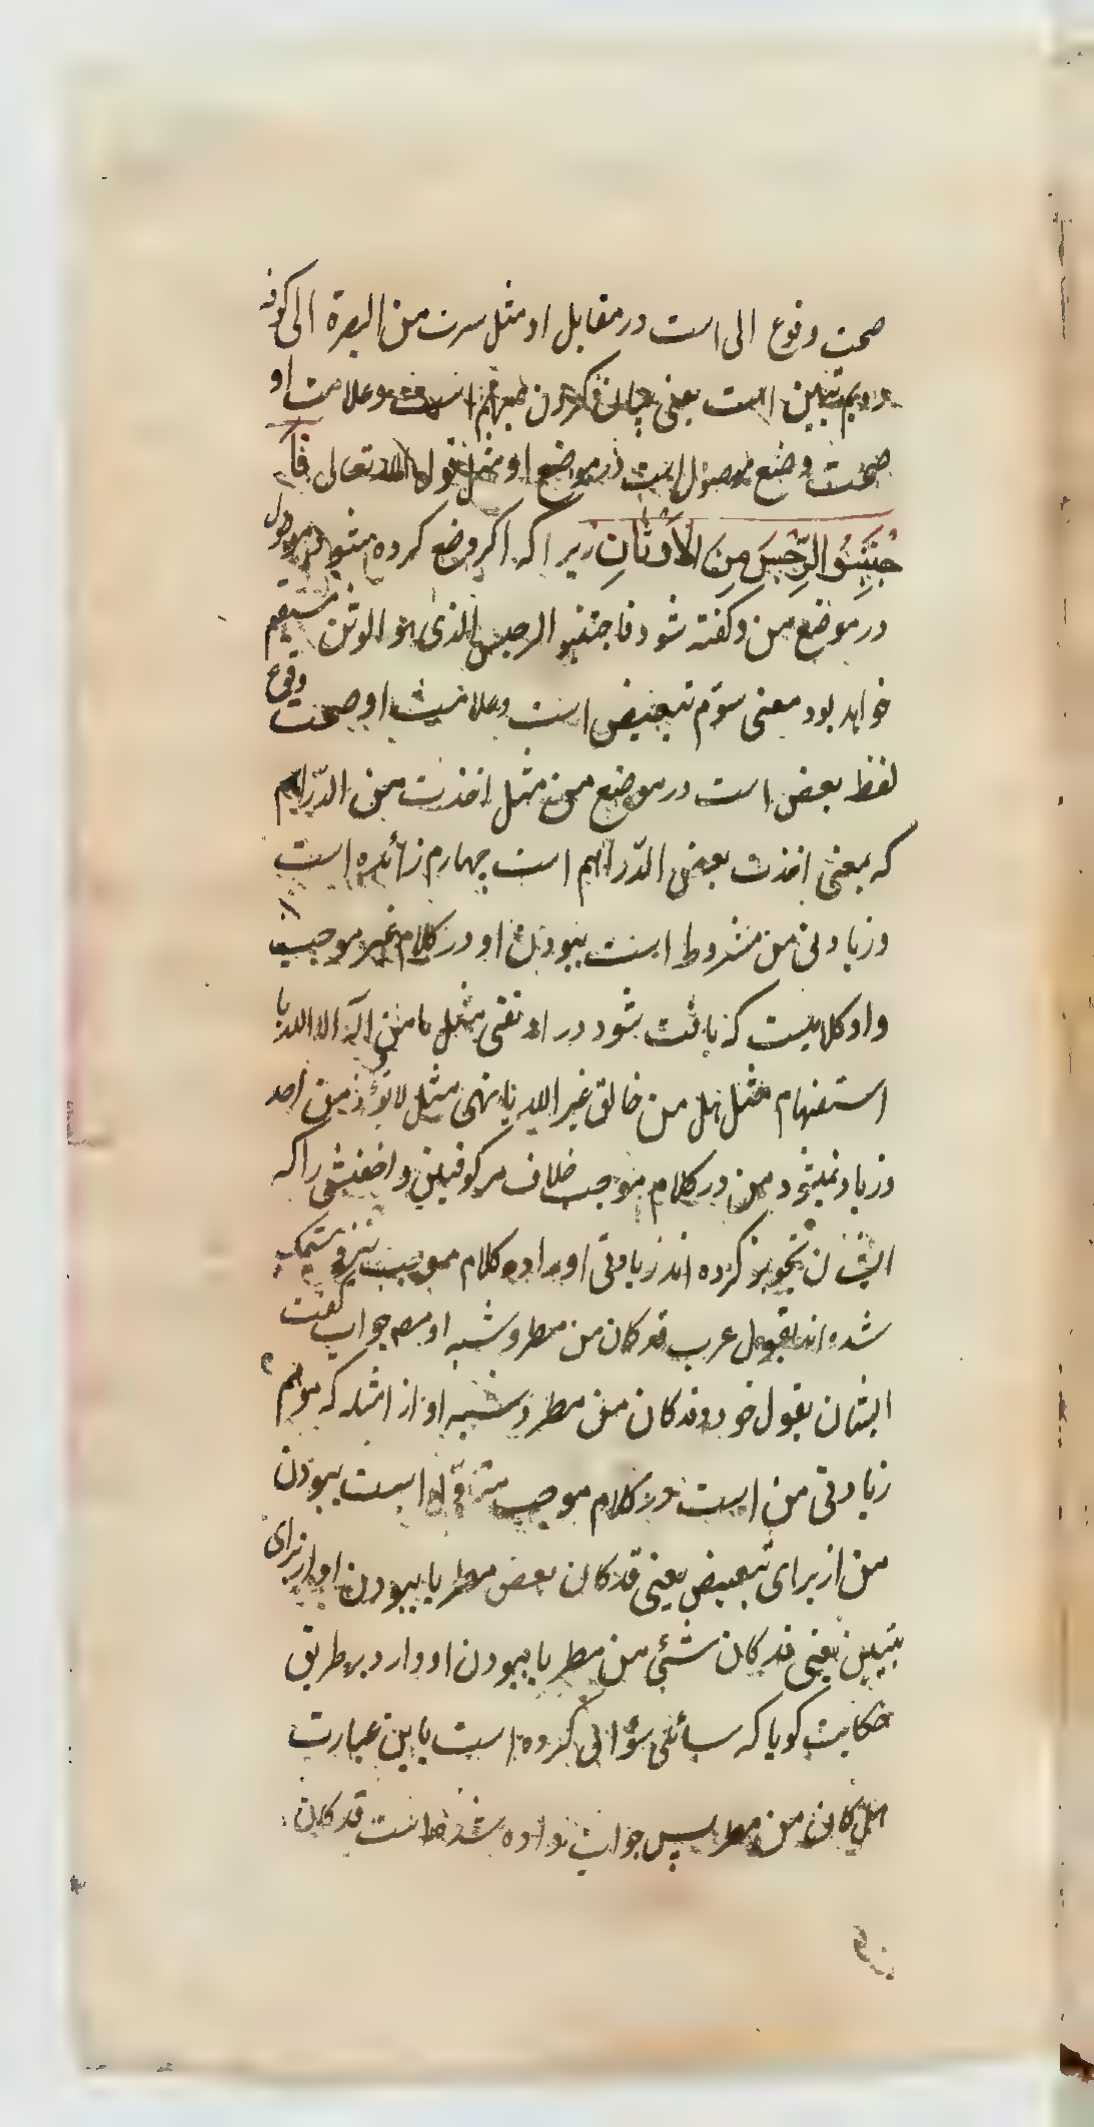 صحت وقوع الی است در مقابل او مثل سرت من البصرة الی کوفه
دویم تبیین است یعنی بیان کردن مبهم است و علامت او
صحت وضع موصول است در موضع او مثل قول الله تعالی فا
جتنبوا الرجس من الاوثان زیرا که اکر وضع کرده شود موصول
در موضع من و کفته شود فاجتنبوا الرجس الذی هو الوثن مستقیم
خواهد بود معنی سوّم تبعیض است و علامت او صحت وقوع
لفظ بعض است در موضع من مثل اخذت من الدّراهم
که بمعنی اخذت بعض الدّراهم است چهارم زائده است
و زیادتی من مشروط است ببودن او در کلام غیر موجب
و او کلامیست که باشد شود در او نفی مثل ما من اله الا الله یا
استفهام مثل هل من خالق غیر الله یا نهی مثل لا تؤذ من احد
و زیاد نمیشود من در کلام موجب خلاف مر کوفیین و اخفش را که
ایشان تجویز کرده اند زیادتی او را در کلام موجب نیز و متمسک
شده اند بقول عرب قد کان من مطر و شبه او مصه جواب کفت
ایشان بقول خود و قد کان من مطر و شبه او از امثله که موهم
زیادتی من است در کلام موجب متاوّل است ببودن
من از برای تبعیض یعنی قد کان بعض مطر یا ببودن او از برای
تبیین یعنی قد کان شئی من مطر یا ببودن او وارد بر طریق
حکایت کویا که سائلی سؤالی کرده است باین عبارت
هل کان من مطر پس جواب داده شد قد کان